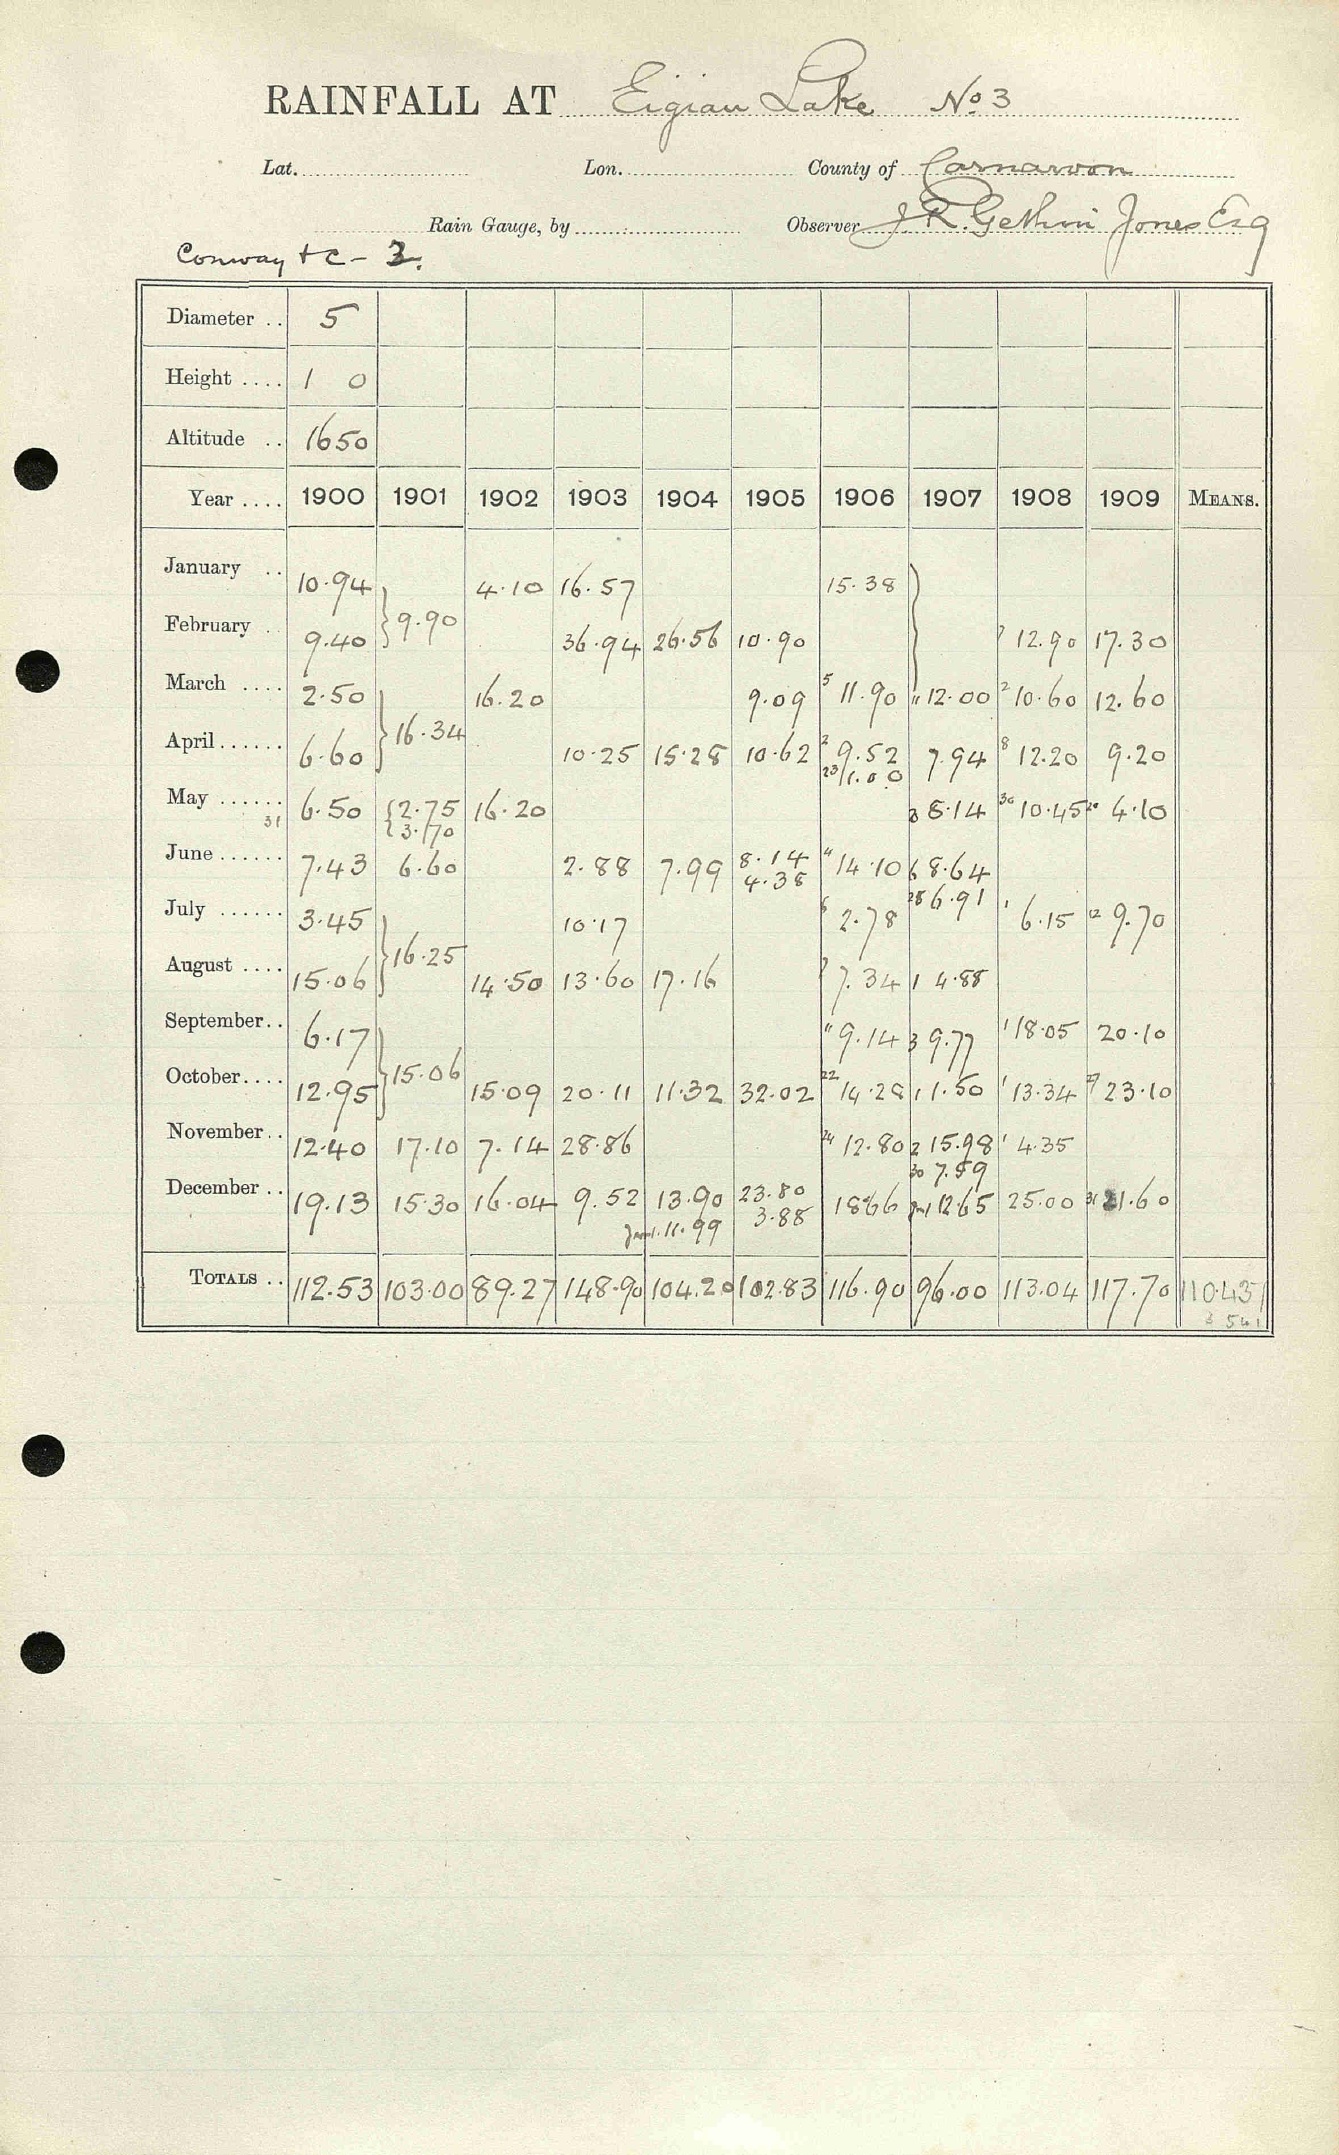 RAINFALL AT Eigiau Lake No 3
Lat. Lon. County of Carnarvon
Rain Gauge, by Observer J. R. Gethin Jones Esq
Conway &c - 3.
Diameter .. 5
Height .... 1 0
Altitude .. 1650
Year .... 1900 1901 1902 1903 1904 1905 1906 1907 1908 1909 MEANS.
January .. 10.94 4.10 16.57 15.38
February .. 9.40 } 9.90 36.94 26.56 10.90 7 12.90 17.30
March .... 2.50 16.20 9.09 5 11.90 11 12.00 2 10.60 12.60
April...... 6.60 } 16.34 10.25 15.28 10.62 2 9.52 7.94 8 12.20 9.20
23 11.00
May ...... 31 6.50 { 2.75 16.20 3 8.14 30 10.45 20 4.10
{ 3.70
June ...... 7.43 6.60 2.88 7.99 8.14 11 14.10 6 8.64
4.38
July ...... 3.45 10.17 6 2.78 28 6.91 1 6.15 12 9.70
August .... 15.06 } 16.25 14.50 13.60 17.16 7 7.34 1 4.88
September.. 6.17 11 9.14 3 9.77 1 18.05 20.10
October.... 12.95 } 15.06 15.09 20.11 11.32 32.02 22 14.28 1 1.50 1 13.34 27 23.10
November.. 12.40 17.10 7.14 28.86 24 12.80 2 15.98 1 4.35
30 7.59
December .. 19.13 15.30 16.04 9.52 13.90 23.80 18.66 Jan 1 12.65 25.00 31 21.60
Jan 1. 11.99 3.88
TOTALS .. 112.53 103.00 89.27 148.90 104.20 102.83 116.90 96.00 113.04 117.70 110.437